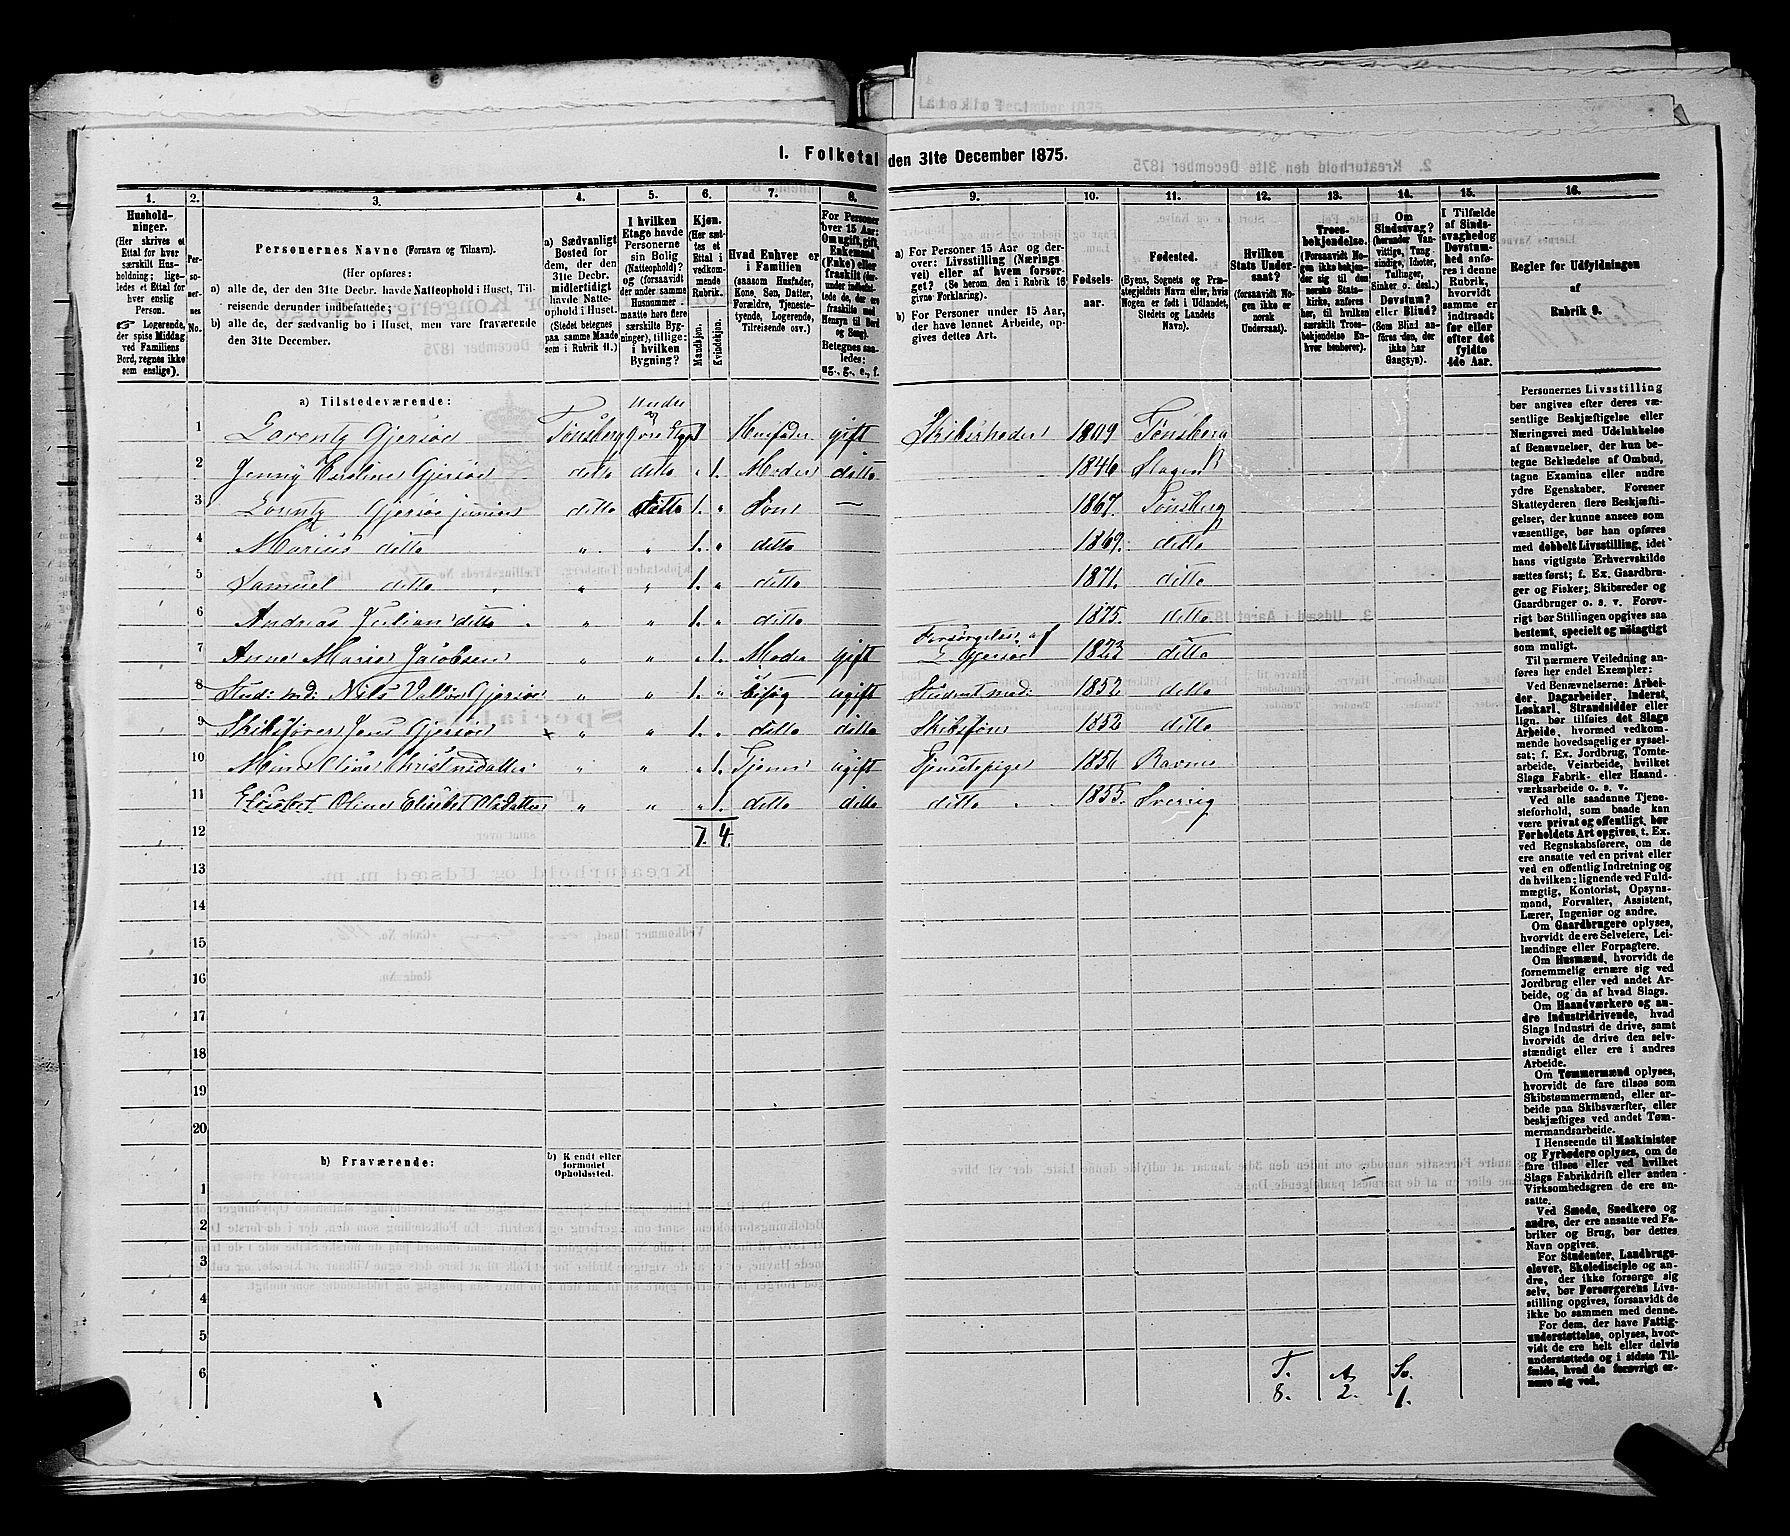 1. Folketal den 31te December 1875.
1. 2. 3. 4. 5. 6. 7. 8. 9. 10. 11. 12. 13. 14. 15. 16.
Hushold-
ninger.
(Her skrives et
Ettal for hver
særskilt Hus-
holdning; lige-
ledes et Ettal for
hver enslig
Person.
Logerende,
der spise Middag
ved Familiens
Bord, regnes ikke
som enslige).
Per-
so-
ner-
nes
No.
Personernes Navne (Fornavn og Tilnavn).
(Her opføres:
a) alle de, der den 31te Decbr. havde Natteophold i Huset, Til-
reisende derunder indbefattede;
b) alle de, der sædvanlig bo i Huset, men vare fraværende
den 31te December.
a) Sædvanligt
Bosted for
dem, der den
31te Decbr.
midlertidigt
havde Natte-
ophold i Huset.
(Stedet betegnes
paa samme Maade
som i Rubrik 11.)
I hvilken
Etage havde
Personerne
sin Bolig
(Natteophold)?
(forsaavidt
der under samme
Husnummer
maatte høre flere
særskilte Byg-
ninger), tillige:
i hvilken
Bygning?
Kjøn.
(Her sæt-
tes et
Ettal i
vedkom-
mende
Rubrik.
Mandkjøn.
Kvindekjøn.
Hvad Enhver er
i Familien
(saasom Husfader,
Kone, Søn, Datter,
Forældre, Tjeneste-
tyende, Logerende,
Tilreisende osv.)
For Personer
over 15 Aar:
Om ugift, gift,
Enkemand
(Enke) eller
fraskilt
Betegnes saa-
ledes:
ug., g., e., f.
a) For Personer 15 Aar og der-
over: Livsstilling (Nærings-
vei) eller af hvem forsør-
get? (Se herom, den i Rubrik 16
givne Forklaring).
b) For Personer under 15 Aar,
der have lønnet Arbeide, op-
gives dettes Art.
Fødsels-
aar.
Fødested.
(Byens, Sognets og Præ-
stegjeldets Navn eller, hvis
Nogen er født i Udlandet,
Stedets og Landets
Navn).
Hvilken
Stats Under-
saat?
(forsaavidt No-
gen ikke er
norsk
Undersaat).
Troes-
bekjendelse.
(Forsaavidt No-
gen ikke bekjen-
der sig til den
norske Stats-
kirke, anføres
her, til hvilken
særskilt Troes-
bekjendelse En-
hver henhører).
Om
Sindssvag?
(herunder Van-
vittige, Tung-
sindige, Idioter,
Tullinger,
Sinker o. desl.)
Døvstum?
eller Blind?
(Som Blind an-
føres den, der
ikke har
Gangsyn).
I Tilfælde
af Sinds-
svaghed og
Døvstum-
hed anfø-
res i denne
Rubrik,
hvorvidt
samme er
indtraadt
før eller
efter det
fyldte
4de Aar.
Regler for Udfyldningen
af
Rubrik 9.
a) Tilstedeværende:
1 Lorentz Gjersøe Tønsberg Husfader gift Skibsrheder 1809 Tønsberg
2 Jenny Gjersøe ditto ditto „ 1. Moder ditto 1846 Slagen
3 Lorentz Gjersøe junior ditto ditto 1. „ Søn — 1867. Tønsberg
4 Marius ditto „ „ 1. „ ditto 1869. ditto
5 Samuel ditto „ „ 1. „ ditto 1871. ditto
6 Andreas Julian ditto „ „ 1. „ ditto 1875. ditto
7 Anne Marie Jacobsen „ „ „ 1. Moder gift Forsørgelse af L. Gjersøe 1823 ditto
8 Stud: md: Nils Gjersøe „ „ 1. „ besøg ugift Student med: 1852 ditto
9 Skibsfører Jens Gjersøe × „ „ 1. „ ditto ditto Skibsfører 1852 ditto
10 „ „ „ 1. ugift Tjenestepige 1856 Ravnes
11 Oline Elisebet „ „ „ 1. ditto ditto ditto 1855. Sverrig
12 7. 4.
13
14
15
16
17
18
19
20
b) Fraværende:
b) Kjendt eller
formodet
Opholdssted.
1
2
3
4
5
6
T. A. Sv.
8. 2. 1.
Personernes Livsstilling
bør angives efter deres væ-
sentlige Beskjæftigelse eller
Næringsvei med Udelukkelse
af Benævnelser, der kun be-
tegne Beklædelse af Ombud,
tagne Examina eller andre
ydre Egenskaber. Forener
Skatteyderen flere Beskjæfti-
gelser, der kunne ansees som
væsentlige, bør han opføres
med dobbelt Livsstilling, idet
hans vigtigste Erhvervskilde
sættes først; f. Ex. Gaardbru-
ger og Fisker; Skibsreder og
Gaardbruger o. s. v. Forøv-
rigt bør Stillingen opgives saa
bestemt, specielt og nøiagtigt
som muligt.
Til nærmere Veiledning an-
føres her endel Exempler:
Ved Benævnelserne: Arbei-
der, Dagarbeider, Inderst,
Løskarl, Strandsidder eller
lign. bør tilføies det Slags
Arbeide, hvormed vedkom-
mende hovedsagelig er syssel-
sat; f. Ex. Jordbrug, Tomte-
arbeide, Veiarbeide, hvilket
Slags Fabrik- eller Haand-
værksarbeide o. s. v.
Ved alle saadanne Tjene-
steforhold, som baade kan
være privat og offentligt, bør
Forholdets Art opgives, t. Ex.
ved Regnskabsførere, om de
ere ansatte ved en privat eller
ved en offentlig Indretning og
da hvilken; lignende ved Fuld-
mægtig, Kontorist, Opsyns-
mand, Forvalter, Assistent,
Lærer, Ingeniør og andre.
Om Gaardbrugere oplyses,
hvorvidt de ere Selveiere, Lei-
lændinge eller Forpagtere.
Om Husmænd, hvorvidt de
fornemmelig ernære sig ved
Jordbrug eller ved andet Ar-
beide, og da af hvad Slags.
Om Haandværkere og an-
dre Industridrivende, hvad
Slags Industri de drive, samt
hvorvidt de drive den selv-
stændigt eller ere i andres
Arbeide.
Om Tømmermænd oplyses,
hvorvidt de fare tilsøs som
Skibstømmermænd, eller ar-
beide paa Skibsværfter, eller
beskjæftiges ved andet Tøm-
mermandsarbeide.
I Henseende til Maskinister
og Fyrbødere oplyses, om de
fare tilsøs eller ved hvilket
Slags Fabrikdrift eller anden
Virksomhedsgren de ere an-
satte.
Ved Smede, Snedkere og
andre, der ere ansatte ved Fa-
briker og Brug, bør dettes
Navn opgives.
For Studenter, Landbrugs-
elever, Skoledisciple og an-
dre, der ikke forsørge sig
selv, bør Forsørgerens Livs-
stilling opgives, forsaavidt de
ikke bo sammen med denne.
For dem, der have Fattig-
understøttelse, oplyses, hvor-
vidt de ere helt eller delvis
understøttede og i sidste Til-
fælde, hvad de forøvrigt er-
nære sig ved.